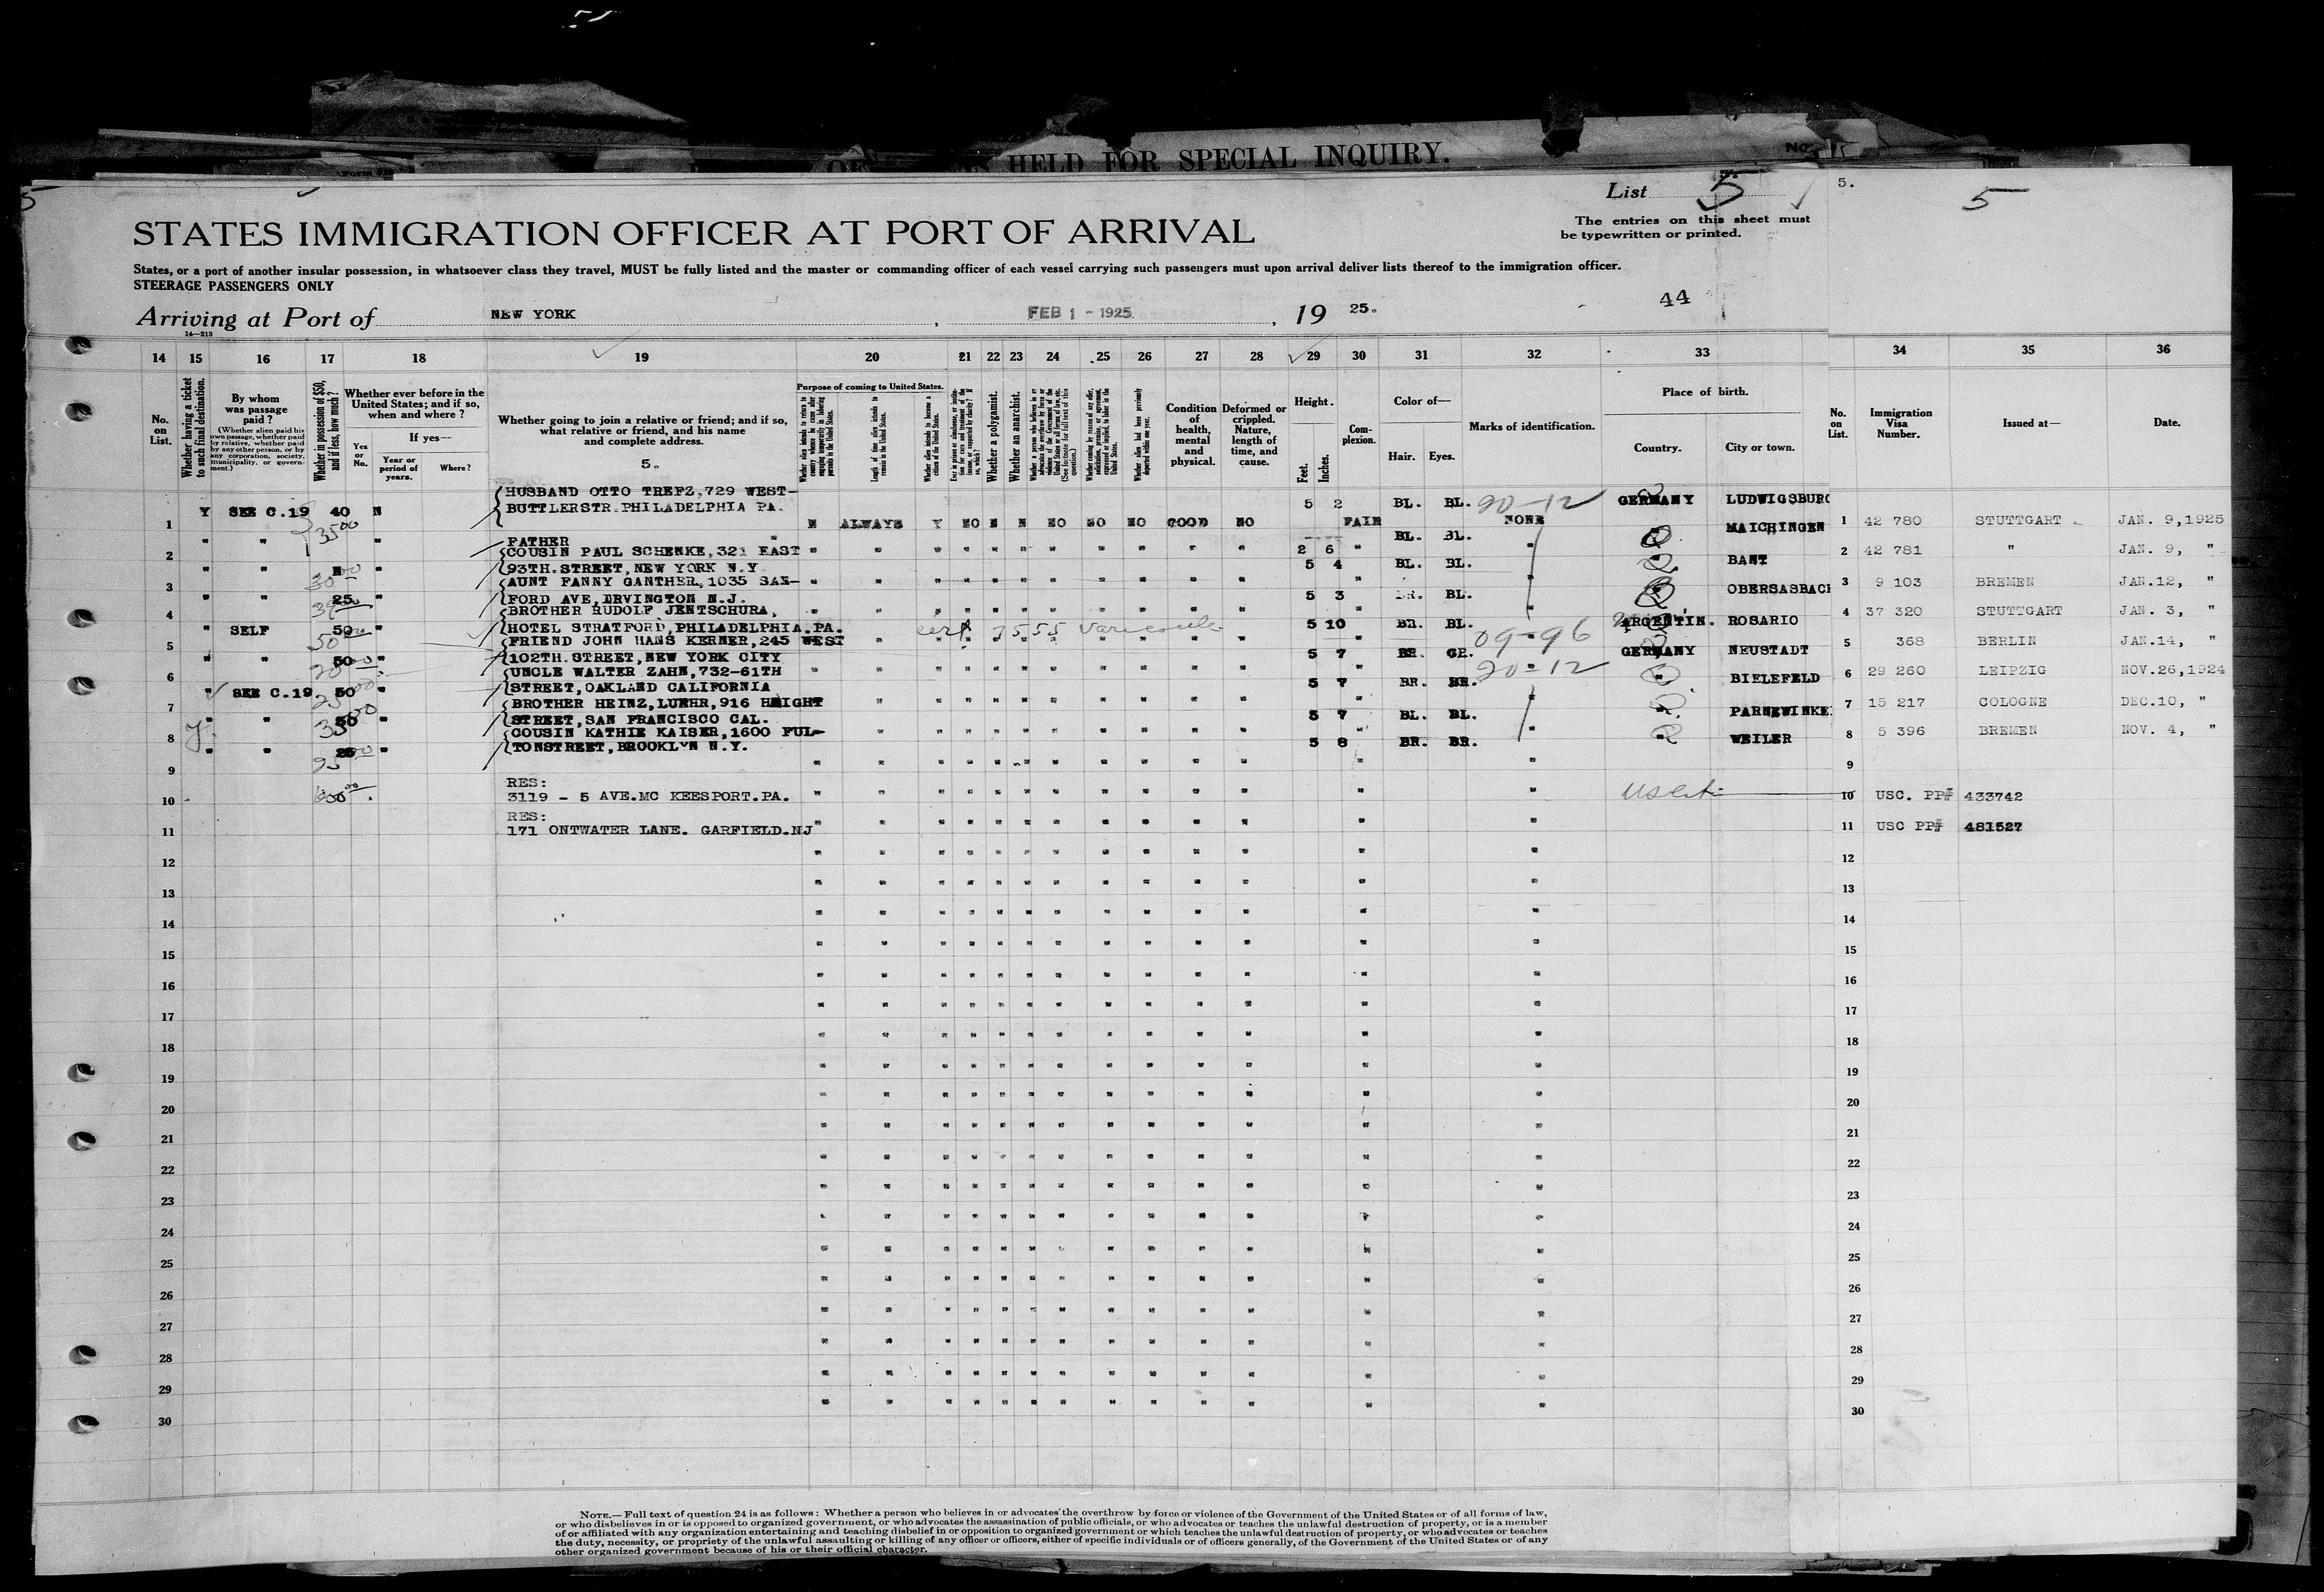 HELD FOR SPECIAL INQUIRY.
No.
List 5
5.
5
The entries on this sheet must
be typewritten or printed.
STATES IMMIGRATION OFFICER AT PORT OF ARRIVAL
States, or a port of another insular possession, in whatsoever class they travel, MUST be fully listed and the master or commanding officer of each vessel carrying such passengers must upon arrival deliver lists thereof to the immigration officer.
STEERAGE PASSENGERS ONLY
44
Arriving at Port of NEW YORK, FEB 1 - 1925, 19 25.
14—213
14 15 16 17 18 19 20 21 22 23 24 25 26 27 28 29 30 31 32 33 34 35 36
No. on List.
Whether having a ticket to such final destination.
By whom was passage paid?
(Whether alien paid his own passage, whether paid by relative, whether paid by any other person, or by any corporation, society, municipality, or government.)
Whether in possession of $50, and if less, how much?
Whether ever before in the United States; and if so, when and where?
Yes or No.
If yes—
Year or period of years.
Where?
Whether going to join a relative or friend; and if so, what relative or friend, and his name and complete address.
5.
Purpose of coming to United States.
Length of time alien intends to remain in the United States.
Whether alien intends to become a citizen of the United States.
Whether a polygamist.
Whether an anarchist.
Condition of health, mental and physical.
Deformed or crippled. Nature, length of time, and cause.
Height.
Feet.
Inches.
Complexion.
Color of—
Hair.
Eyes.
Marks of identification.
Place of birth.
Country.
City or town.
No. on List.
Immigration Visa Number.
Issued at—
Date.
1 Y SEE C.19 40 N HUSBAND OTTO TREFZ,729 WEST-
BUTTLERSTR.PHILADELPHIA PA. N ALWAYS Y NO N N NO NO NO GOOD NO 5 2 FAIR BL. BL. 20-12 NONE GERMANY LUDWIGSBURG 1 42 780 STUTTGART JAN. 9,1925
2 " " 3500 " FATHER " " " " " " " " " " " 2 6 " BL. BL. " " MAICHINGEN 2 42 781 " JAN. 9, "
3 " " N " COUSIN PAUL SCHENKE,321 EAST
93TH.STREET,NEW YORK N.Y 5 4 " BL. BL. " " BANT 3 9 103 BREMEN JAN.12, "
4 " " 25 " AUNT FANNY GANTHER,1035 SAN-
FORD AVE,IRVINGTON N.J. 5 3 " BL. " OBERSASBACH 4 37 320 STUTTGART JAN. 3, "
5 " SELF 50 " BROTHER RUDOLF JENTSCHURA,
HOTEL STRATFORD,PHILADELPHIA.PA. cert 5 10 " BR. BL. ARGENTIN. ROSARIO 5 368 BERLIN JAN.14, "
6 " " 50 " FRIEND JOHN HANS KERNER,245 WEST
102TH.STREET,NEW YORK CITY 5 7 " BR. GR. 09-96 GERMANY NEUSTADT 6 29 260 LEIPZIG NOV.26,1924
7 " SEE C.19 50 " UNCLE WALTER ZAHN,732-61TH
STREET,OAKLAND CALIFORNIA 5 7 " BR. BR. 20-12 " BIELEFELD 7 15 217 COLOGNE DEC.10, "
8 " " 50 " BROTHER HEINZ,LUEHR,916 HAIGHT
STREET,SAN FRANCISCO CAL. 5 7 " BL. BL. " " PARNEWINKEL 8 5 396 BREMEN NOV. 4, "
9 " " 25 " COUSIN KATHIE KAISER,1600 FUL-
TONSTREET,BROOKLYN N.Y. 5 8 " BR. BR. " " WEILER 9
RES:
10 3119 - 5 AVE.MC KEESPORT.PA. 10 USC. PP# 433742
RES:
11 171 ONTWATER LANE. GARFIELD.NJ 11 USC PP# 481527
12 12
13 13
14 14
15 15
16 16
17 17
18 18
19 19
20 20
21 21
22 22
23 23
24 24
25 25
26 26
27 27
28 28
29 29
30 30
NOTE.—Full text of question 24 is as follows: Whether a person who believes in or advocates the overthrow by force or violence of the Government of the United States or of all forms of law,
or who disbelieves in or is opposed to organized government, or who advocates the assassination of public officials, or who advocates or teaches the unlawful destruction of property, or is a member
of or affiliated with any organization entertaining and teaching disbelief in or opposition to organized government or which teaches the unlawful destruction of property, or who advocates or teaches
the duty, necessity, or propriety of the unlawful assaulting or killing of any officer or officers, either of specific individuals or of officers generally, of the Government of the United States or of any
other organized government because of his or their official character.